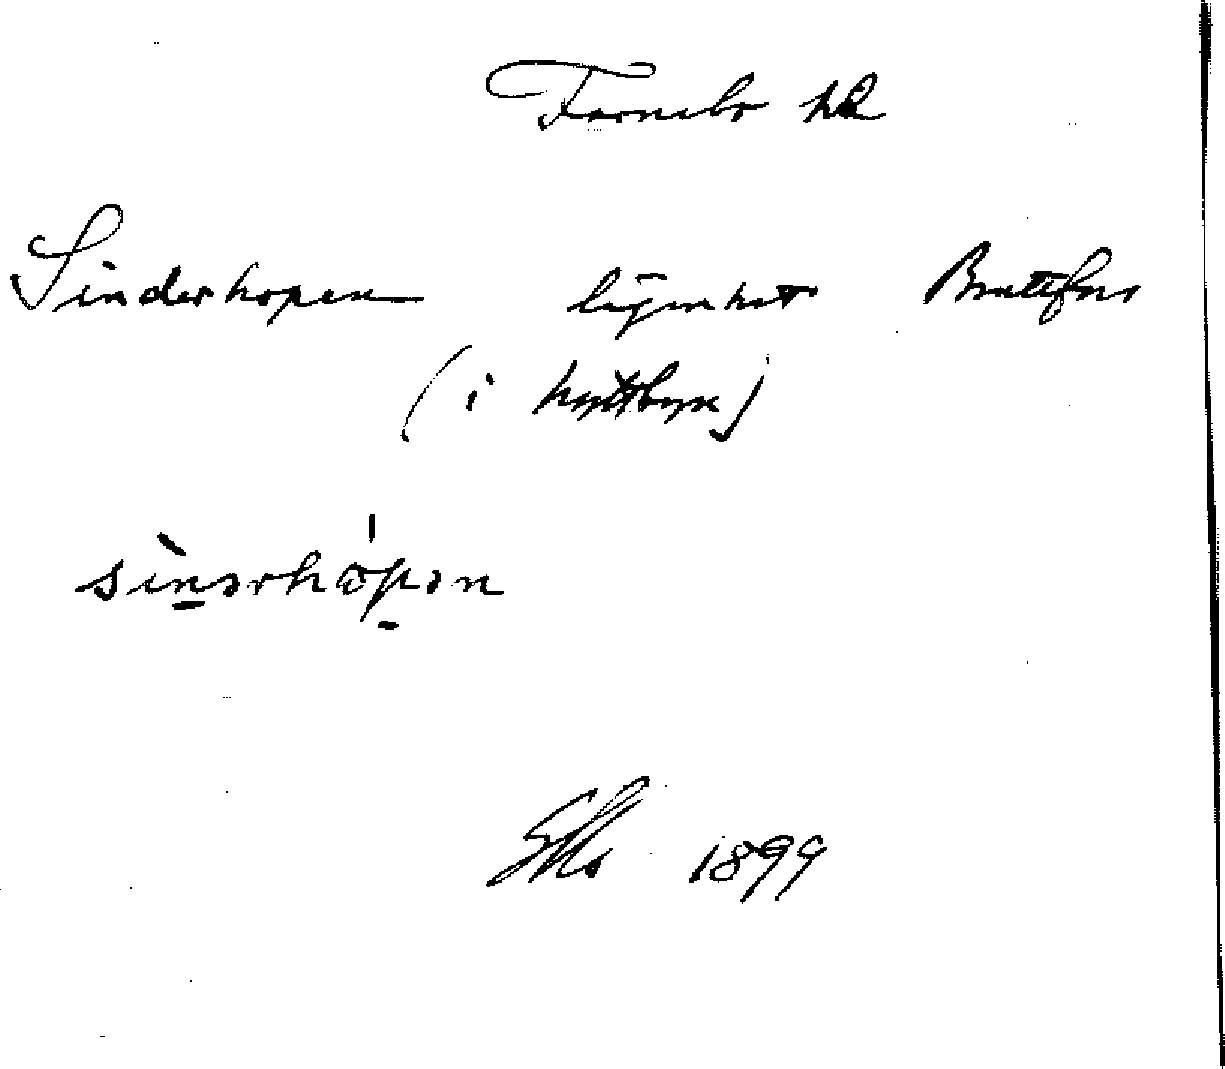 Færnebo hd
Sinderhopen lägenhet Brattfors
(i hyttbyn)
sìnərhópən
1899